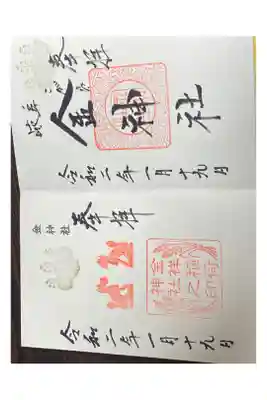 奉拝
岐阜 こがね
金神社
令和二年一月十九日
金神社
奉拝
令和二年一月十九日